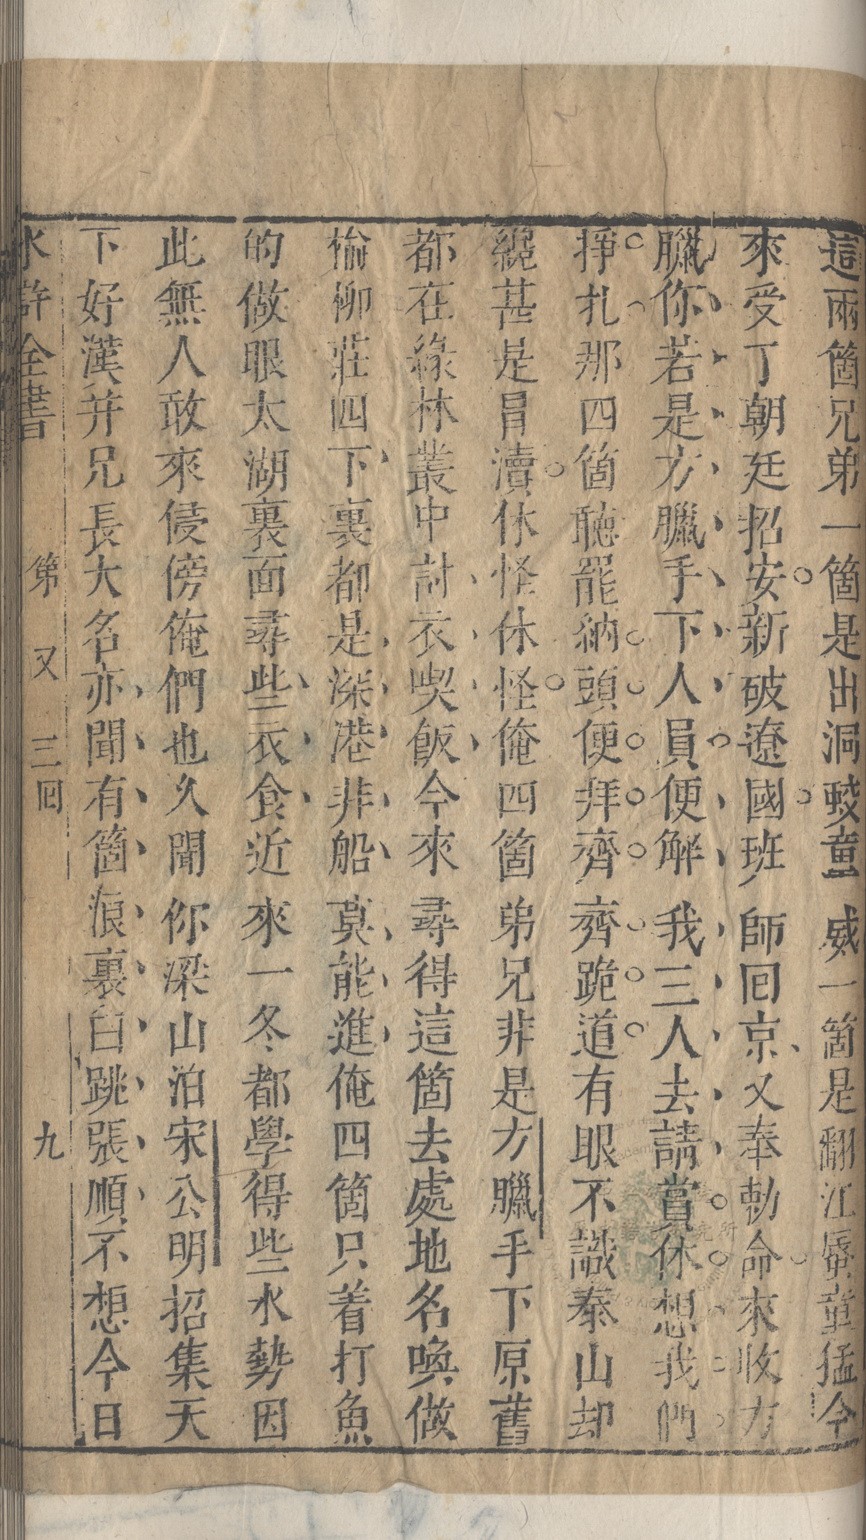 這兩箇兄弟一箇是出洞蛟童威一箇是翻江蜃童猛今
來受了朝廷招安新破遼國班師回京又奉勅命來收方
臘你若是方臘手下人員便解我三人去請賞休想我們
掙扎那四箇聽罷納頭便拜齊齊跪道有眼不識泰山却
纔甚是冐瀆休怪休怪俺四箇弟兄非是方臘手下原舊
都在綠林叢中討衣喫飯今來尋得這箇去處地名喚做
榆柳莊四下裏都是深港非船莫能進俺四箇只着打魚
的做眼太湖裏面尋些衣食近來一冬都學得些水勢因
此無人敢來侵傍俺們也久聞你梁山泊宋公明招集天
下好漢并兄長大名亦聞有箇浪裏白跳張順不想今日
水滸全書 第又三回 九